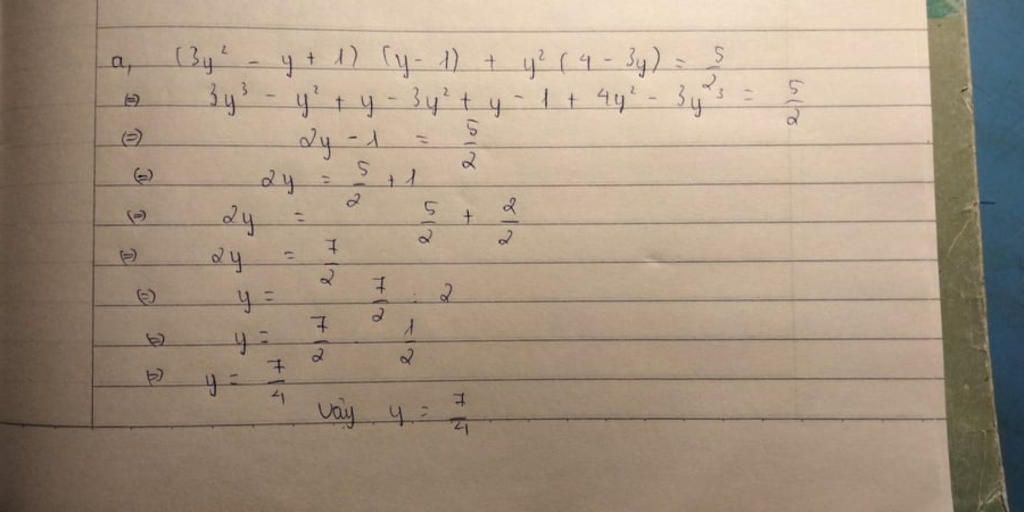 a, (3y² - y + 1) (y - 1) + y² (4 - 3y) = 5/2
(=) 3y³ - y² + y - 3y² + y - 1 + 4y² - 3y³ = 5/2
(=) 2y - 1 = 5/2
(=) 2y = 5/2 + 1
(=) 2y = 5/2 + 2/2
(=) 2y = 7/2
(=) y = 7/2 : 2
(=) y = 7/2 . 1/2
(=) y = 7/4
Vậy y = 7/4